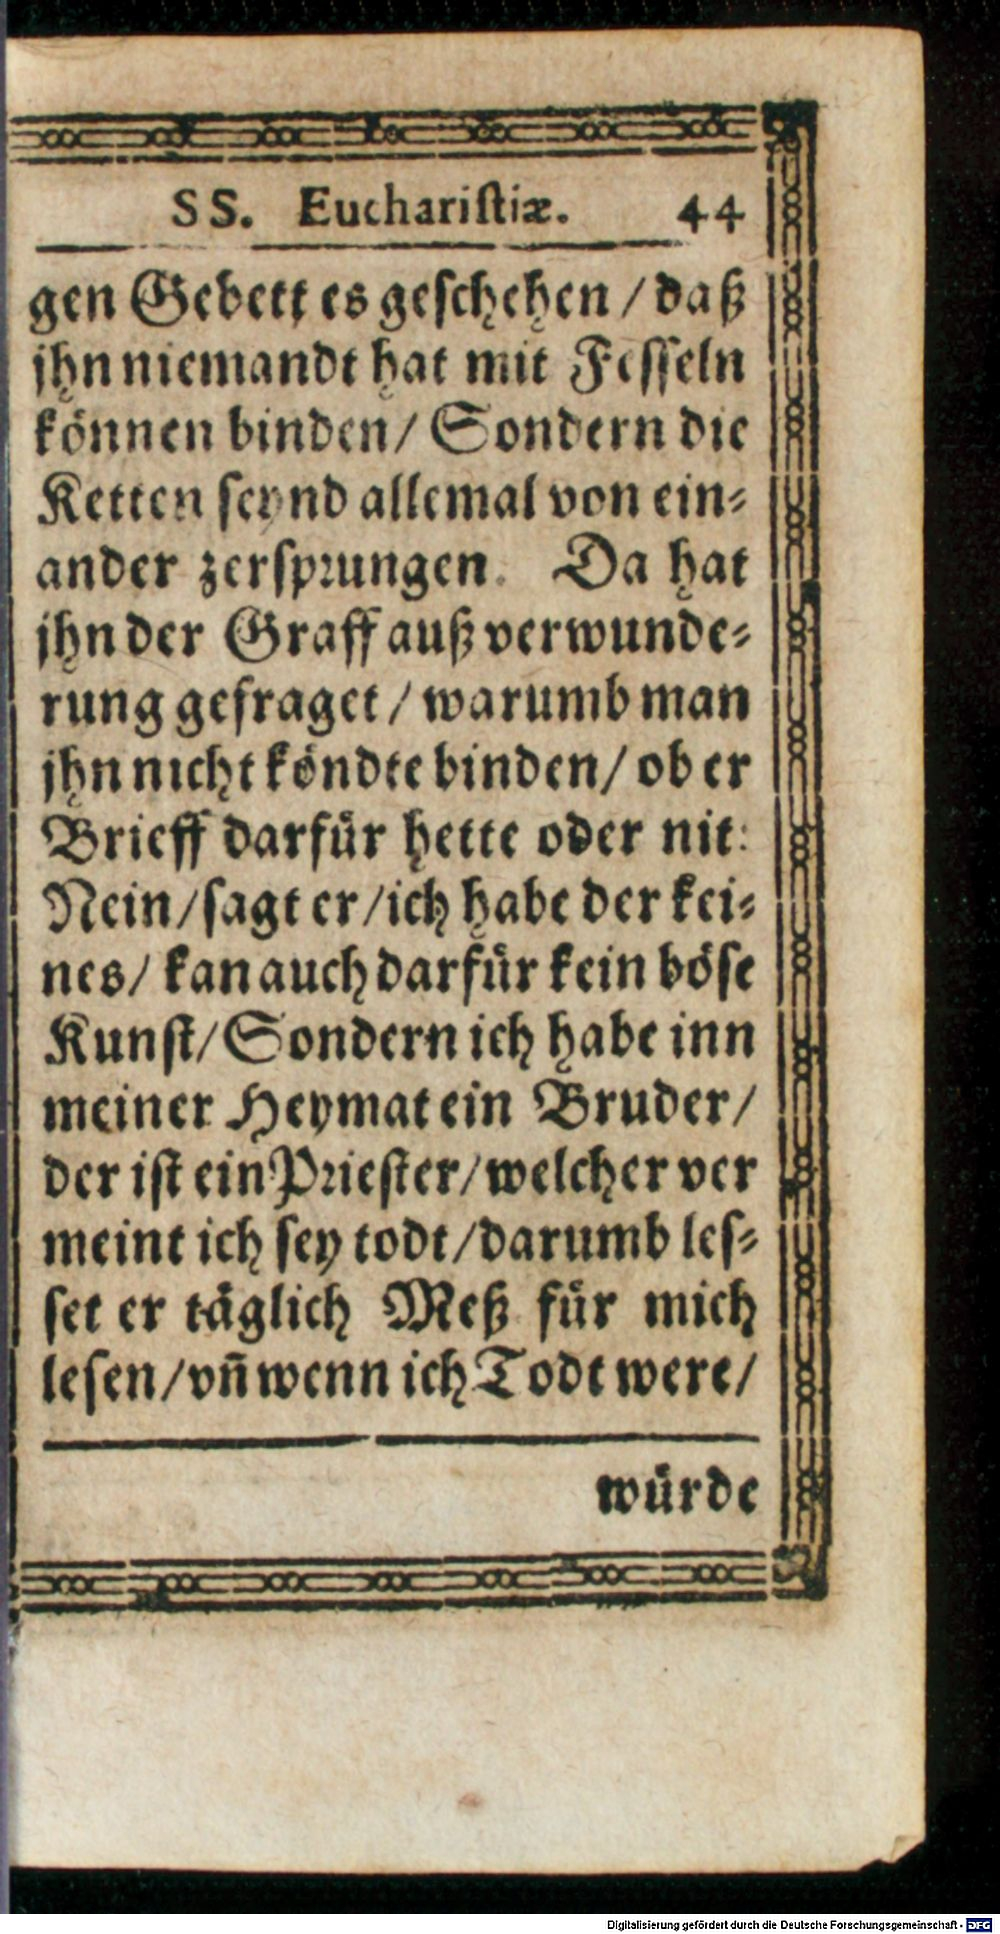 SS. Euchariſtiæ. 44
gen Gebett es geſchehen / daß
jhn niemandt hat mit Feſſeln
können binden / Sondern die
Ketten ſeynd allemal von ein⸗
ander zerſprungen. Da hat
jhn der Graff auß verwunde⸗
rung gefraget / warumb man
jhn nicht köndte binden / ob er
Brieff darfür hette oder nit:
Nein / ſagt er / ich habe der kei⸗
nes / kan auch darfür kein böſe
Kunſt / Sondern ich habe inn
meiner Heymat ein Bruder /
der iſt ein Prieſter / welcher ver
meint ich ſey todt / darumb leſ⸗
ſet er täglich Meß für mich
leſen / vñ wenn ich Todt were /
würde
Digitalisierung gefördert durch die Deutsche Forschungsgemeinschaft - DFG